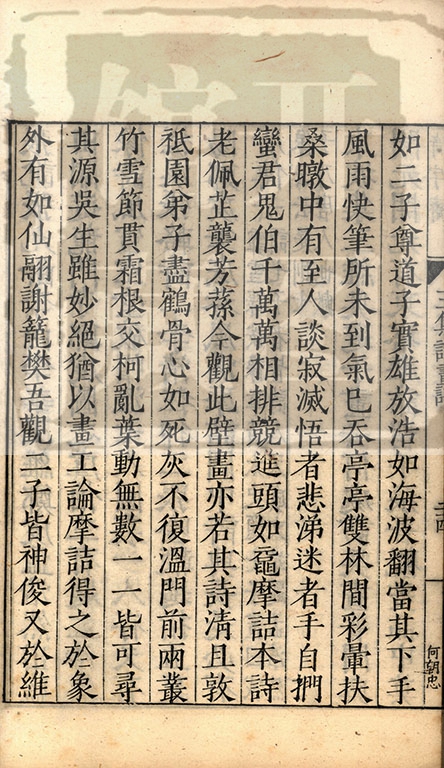 如二子尊道子實雄放浩如海波翻當其下手
風雨快筆所未到氣已吞亭亭雙林間彩暈扶
桑暾中有至人談寂滅悟者悲涕迷者手自捫
蠻君鬼伯千萬萬相排競進頭如黿摩詰本詩
老佩芷襲芳蓀今觀此壁畫亦若其詩清且敦
祇園弟子盡鶴骨心如死灰不復溫門前兩叢
竹雪節貫霜根交柯亂葉動無數一一皆可尋
其源吳生雖妙絕猶以畫工論摩詰得之於象
外有如仙翮謝籠樊吾觀二子皆神俊又於維
何朝忠